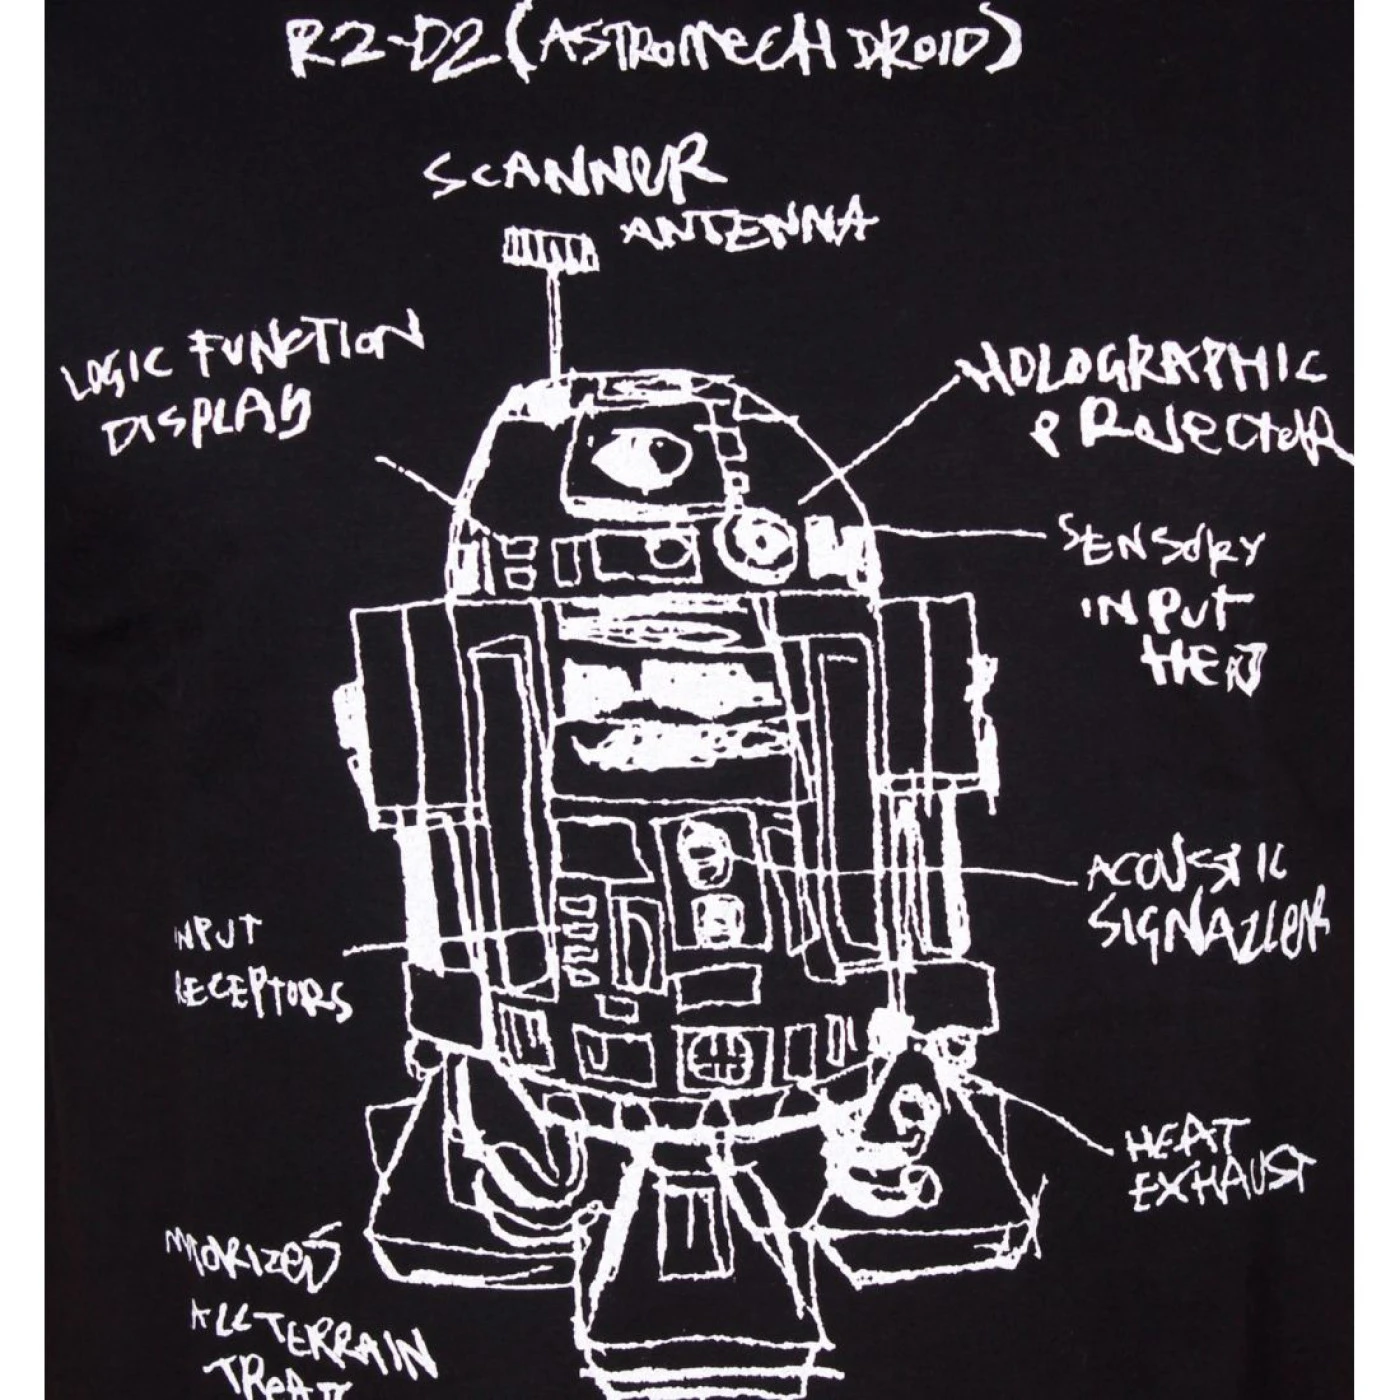 R2-D2 (ASTROMECH DROID)
SCANNER
ANTENNA
LOGIC FUNCTION
DISPLAY
HOLOGRAPHIC
PROJECTOR
SENSORY
INPUT
HEAD
ACOUSTIC
SIGNALLER
INPUT
RECEPTORS
HEAT
EXHAUST
MORIZED
ALL TERRAIN